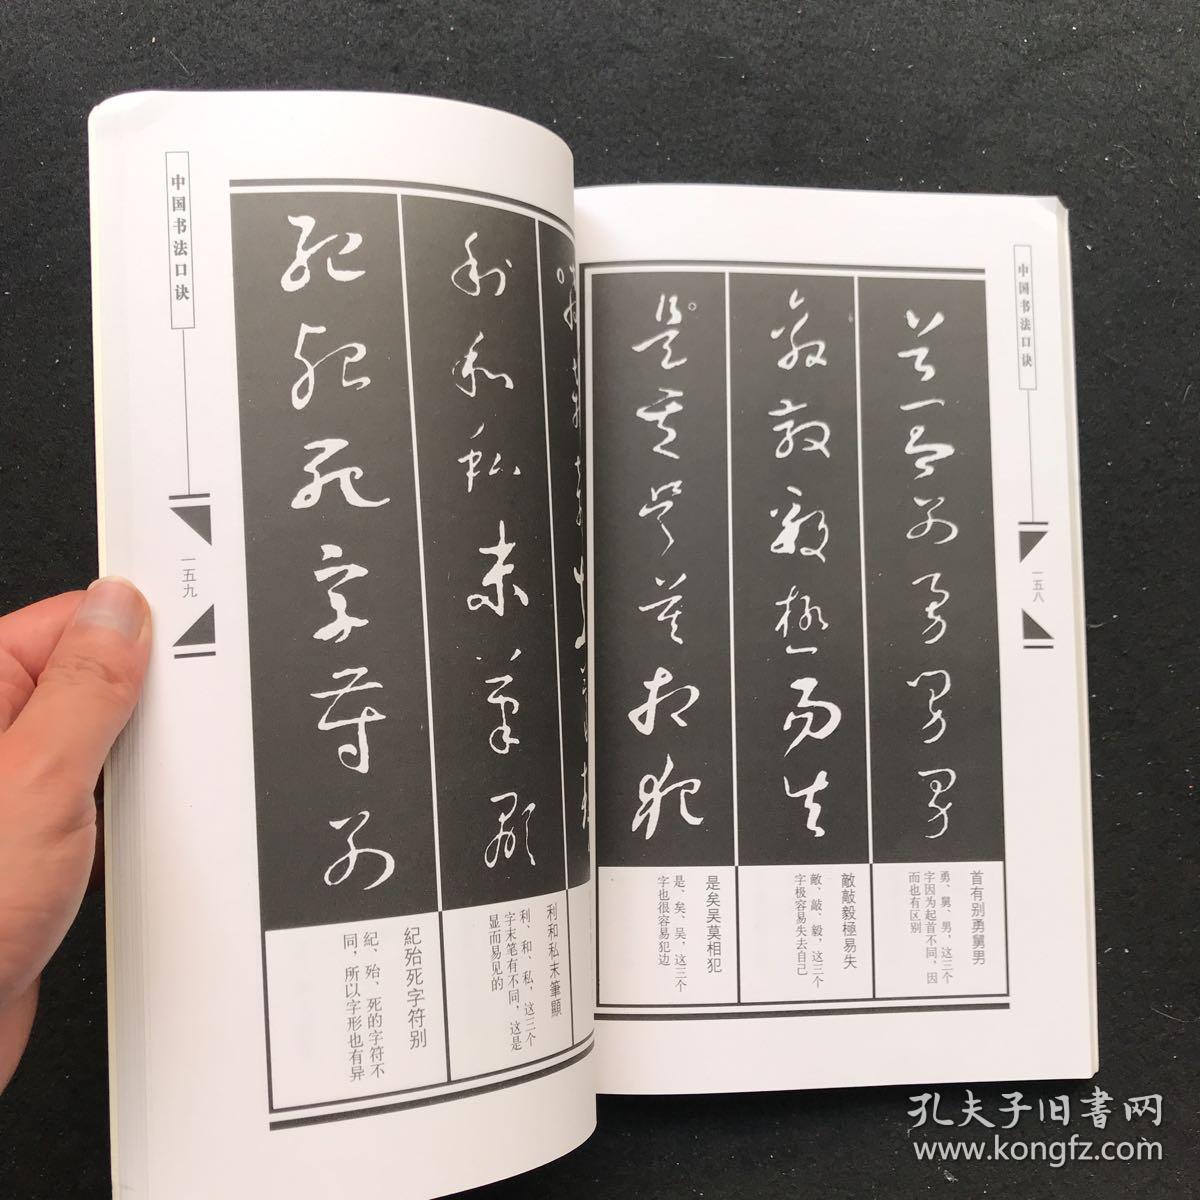 中国书法口诀
一五八
首有别勇舅男
首有别勇舅男
勇、舅、男，这三个
字因为起首不同，因
而也有区别
敵敲毅極易失
敵敲毅極易失
敵、敲、毅，这三个
字极容易失去自己
是矣吴莫相犯
是矣吴莫相犯
是、矣、吴，这三个
字也很容易犯边
利和私末筆顯
利和私末筆顯
利、和、私，这三个
字末笔有不同，这是
显而易见的
紀殆死字符别
紀殆死字符别
紀、殆、死的字符不
同，所以字形也有异
中国书法口诀
一五九
孔夫子旧書网
www.kongfz.com